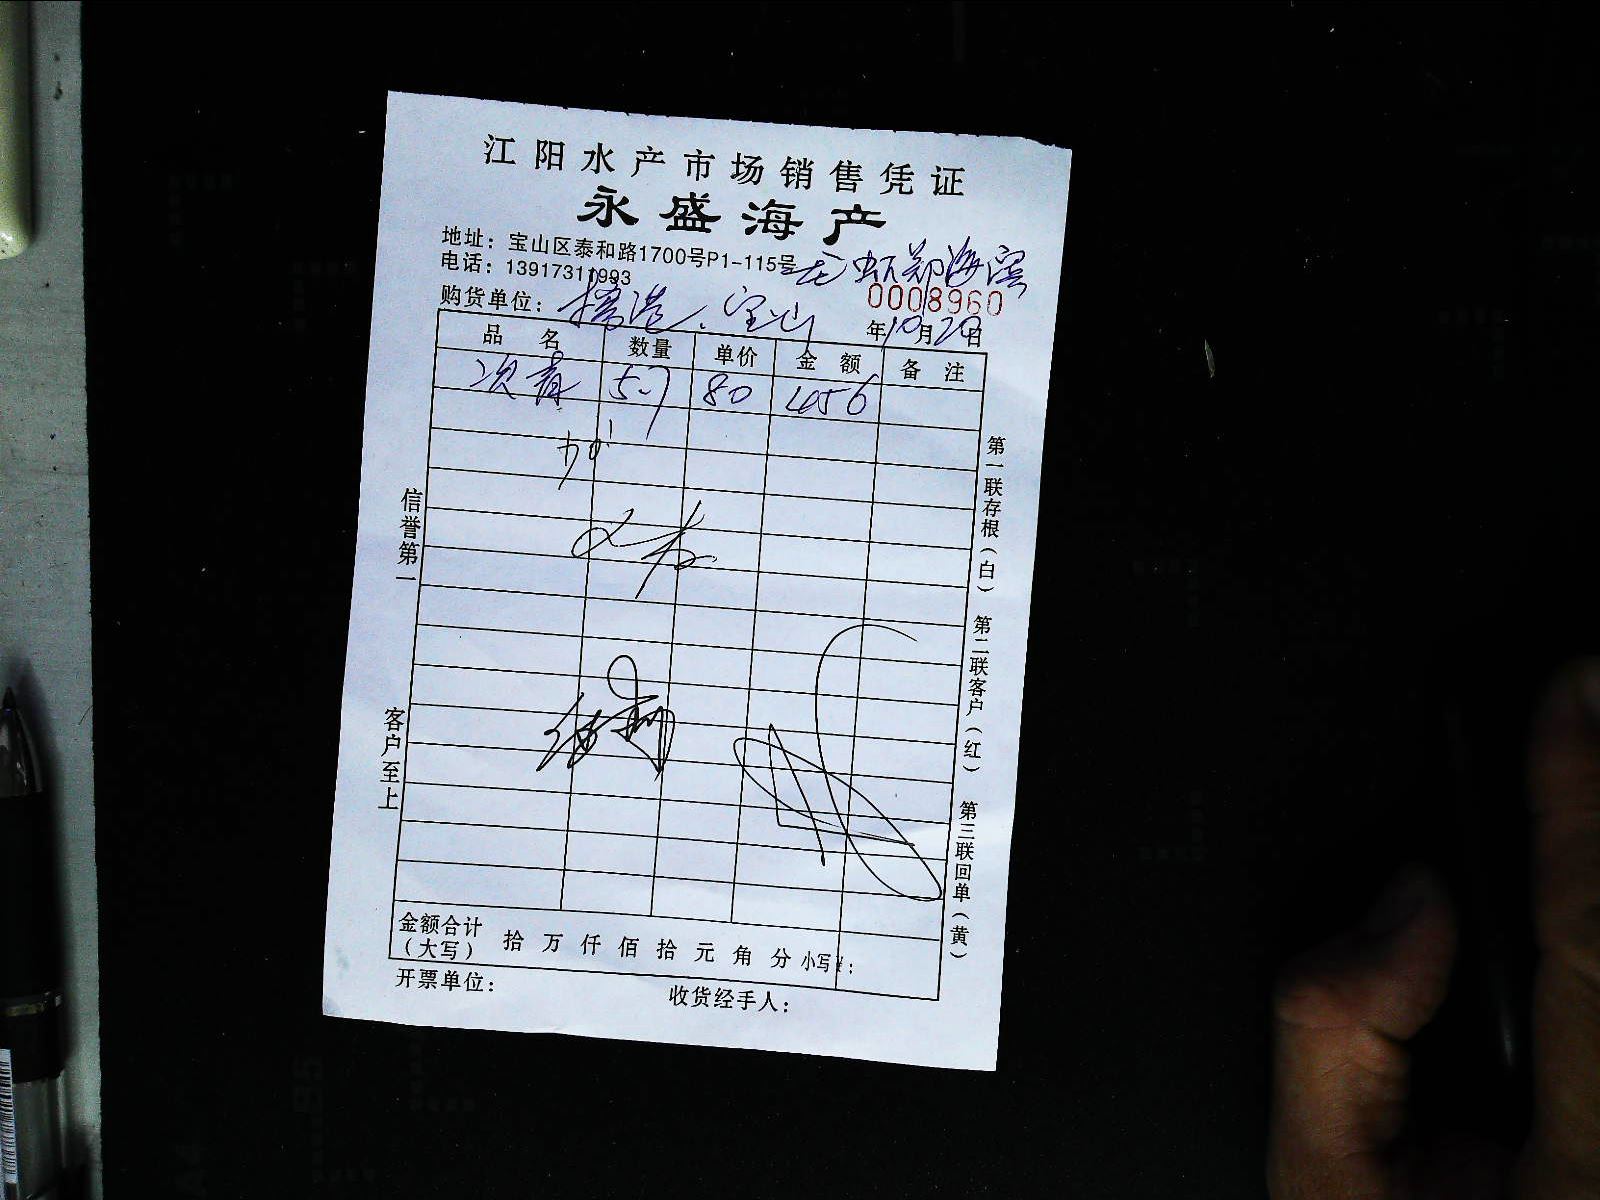 江阳水产市场销售凭证
永盛海产
地址：宝山区泰和路1700号P1-115号
龙虾郑海滨
电话：13917311993
0008960
购货单位： 宝山
年10月20日
品 名 数量 单价 金 额 备 注
次青 5.7 80 456
信誉第一
客户至上
第一联存根（白） 第二联客户（红） 第三联回单（黄）
金额合计（大写） 拾 万 仟 佰 拾 元 角 分 小写¥：
开票单位： 收货经手人：